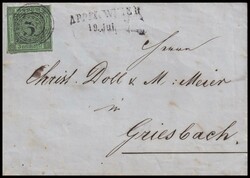 3
APPENWEIER
19. Jul.
Herrn
Christ. Doll v. M: Meier
in
Griesbach.